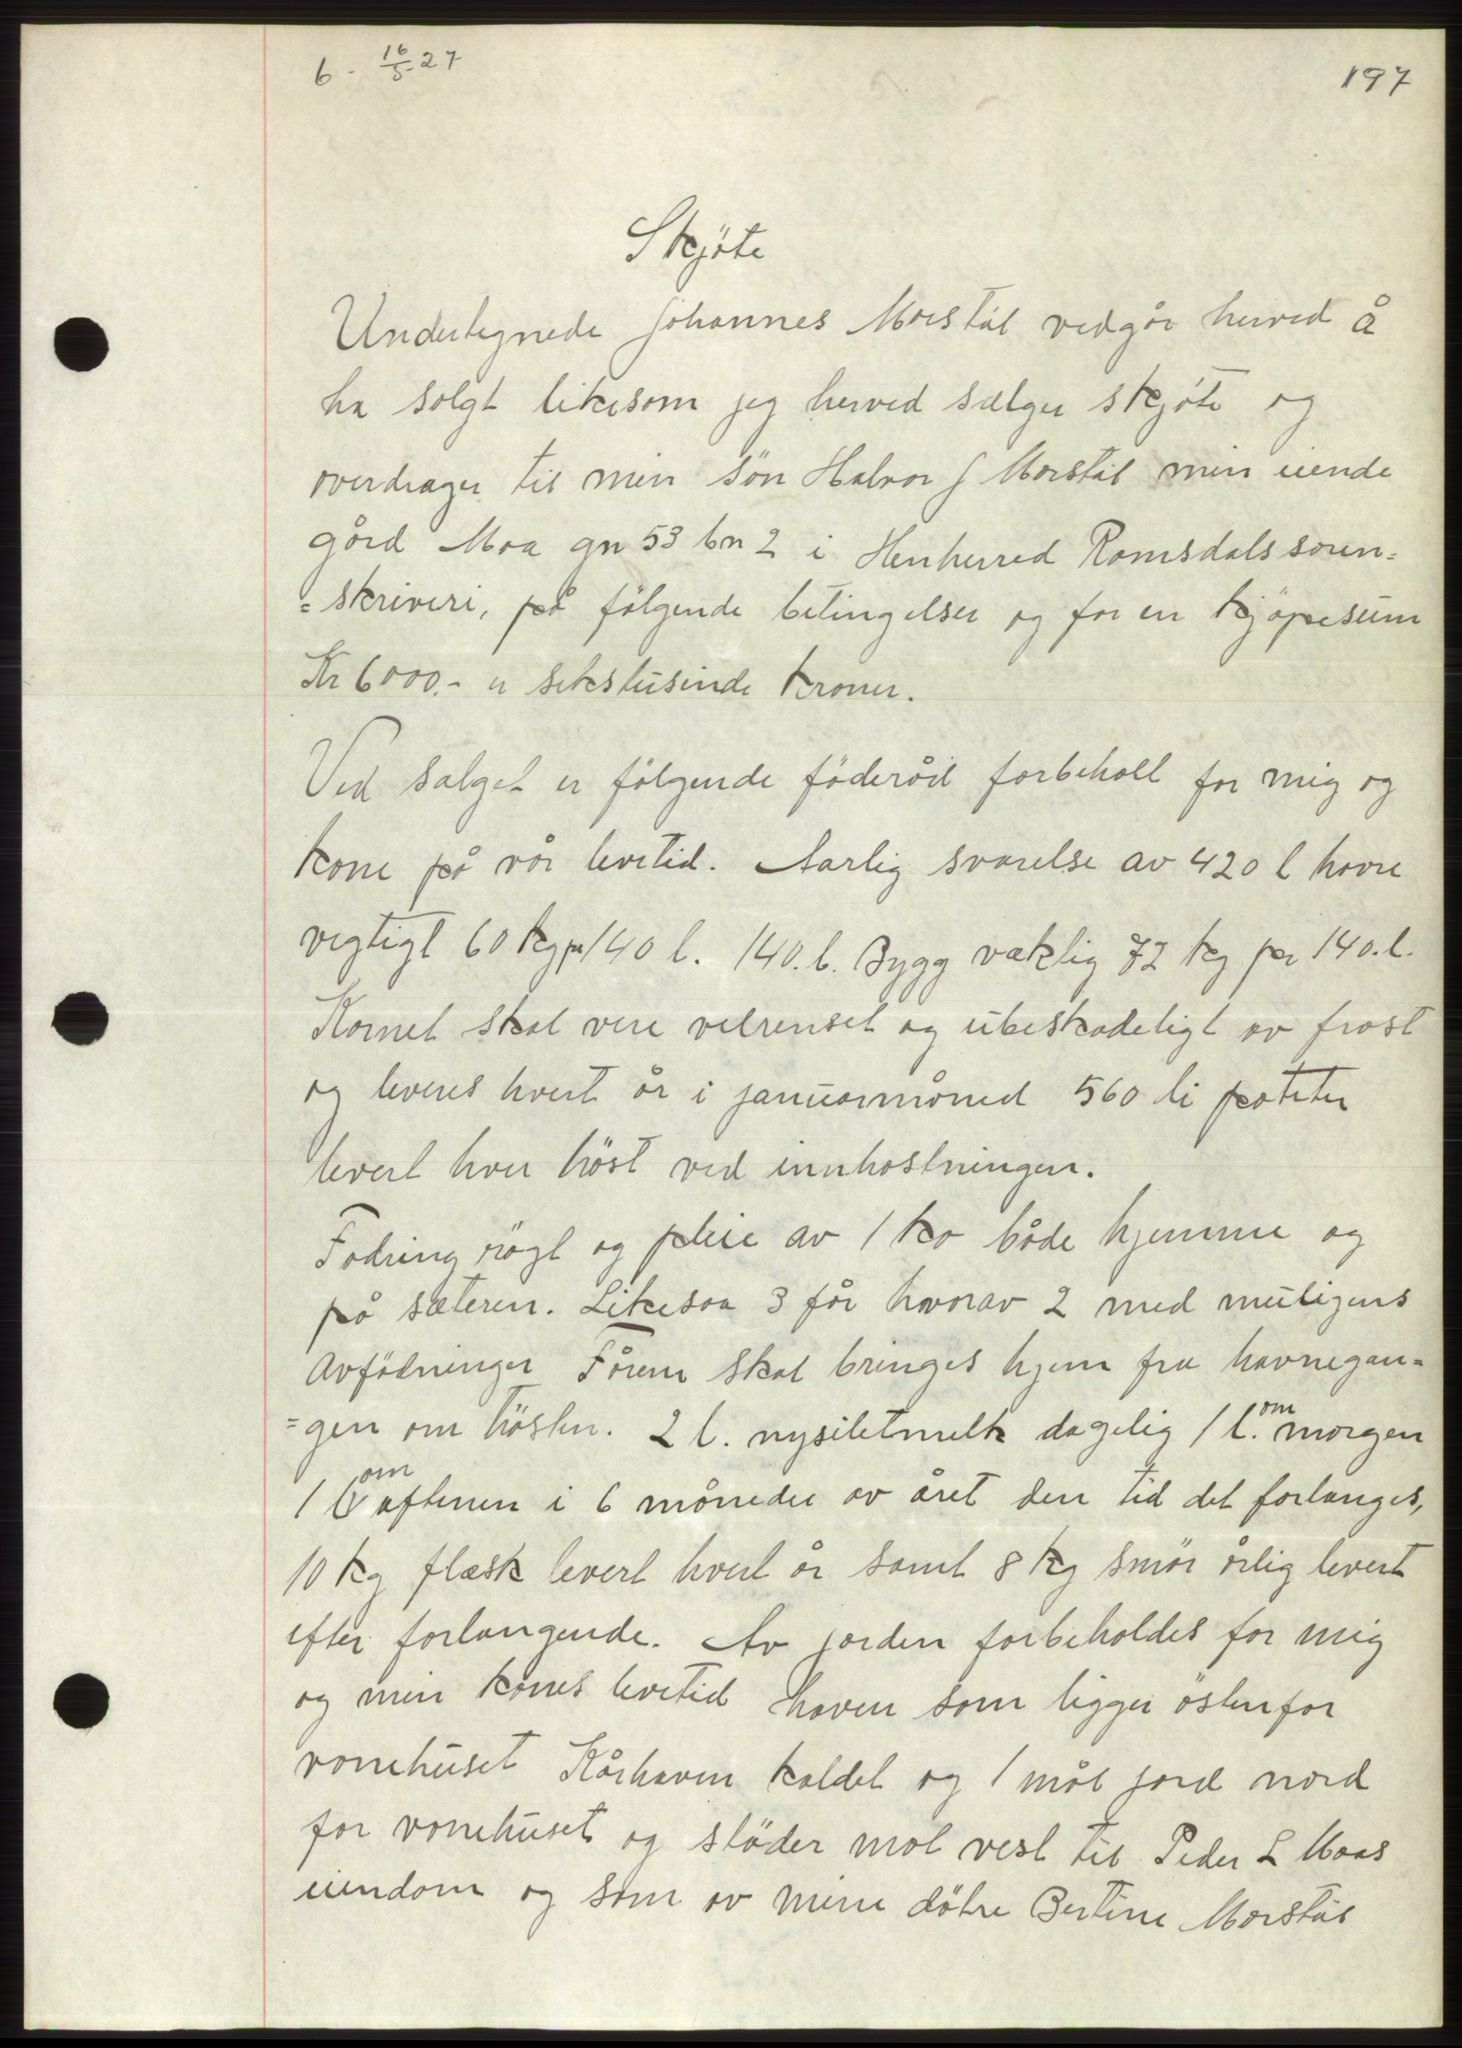 6 - 16/5-27
197
Skjöte
Undertegnede Johannes Morstöl vedgår herved å
ha solgt likesom jeg herved sælger skjöte og
overdrager til min sön Halvor J Morstöl min eiende
gård Moa gn 53 bn 2 i Henherred Romsdals soren=
=skriveri, på fölgende betingelser og for en kjöpesum
Kr 6000.- er sekstusinde kroner.
Ved salget er fölgende föderåd forbeholt for mig og
kone på vår levetid. Aarlig svarelse av 420 l havre
vegtigt 60 kg pr 140 l. 140. l. Bygg væktig 72 kg per 140. l.
Kornet skal vere velrenset og ubeskadeligt av frost
og leveres hvert år i januarmåned 560 li poteter
levert hver höst ved innhöstningen.
Fodring rögt og pleie av 1 ko både hjemme og
på sæteren. Likesaa 3 får hvorav 2 med muligens
Avfödninger Fårene skal bringes hjem fra havnegan=
=gen om hösten. 2 l. nysiletmelk dagelig 1 l. om morgen
1 l om aftenen i 6 måneder av året den tid det forlanges,
10 kg flæsk levert hvert år samt 8 kg smör årlig levert
efter forlangende. Av jorden forbeholdes for mig
og min kones levetid haven som ligger östenfor
vonehuset Kårhaven kaldet og 1 mål jord nord
for vonehuset og stöder mot vest til Peder L Moas
eiendom og som av mine dötre Bertine Morstöl